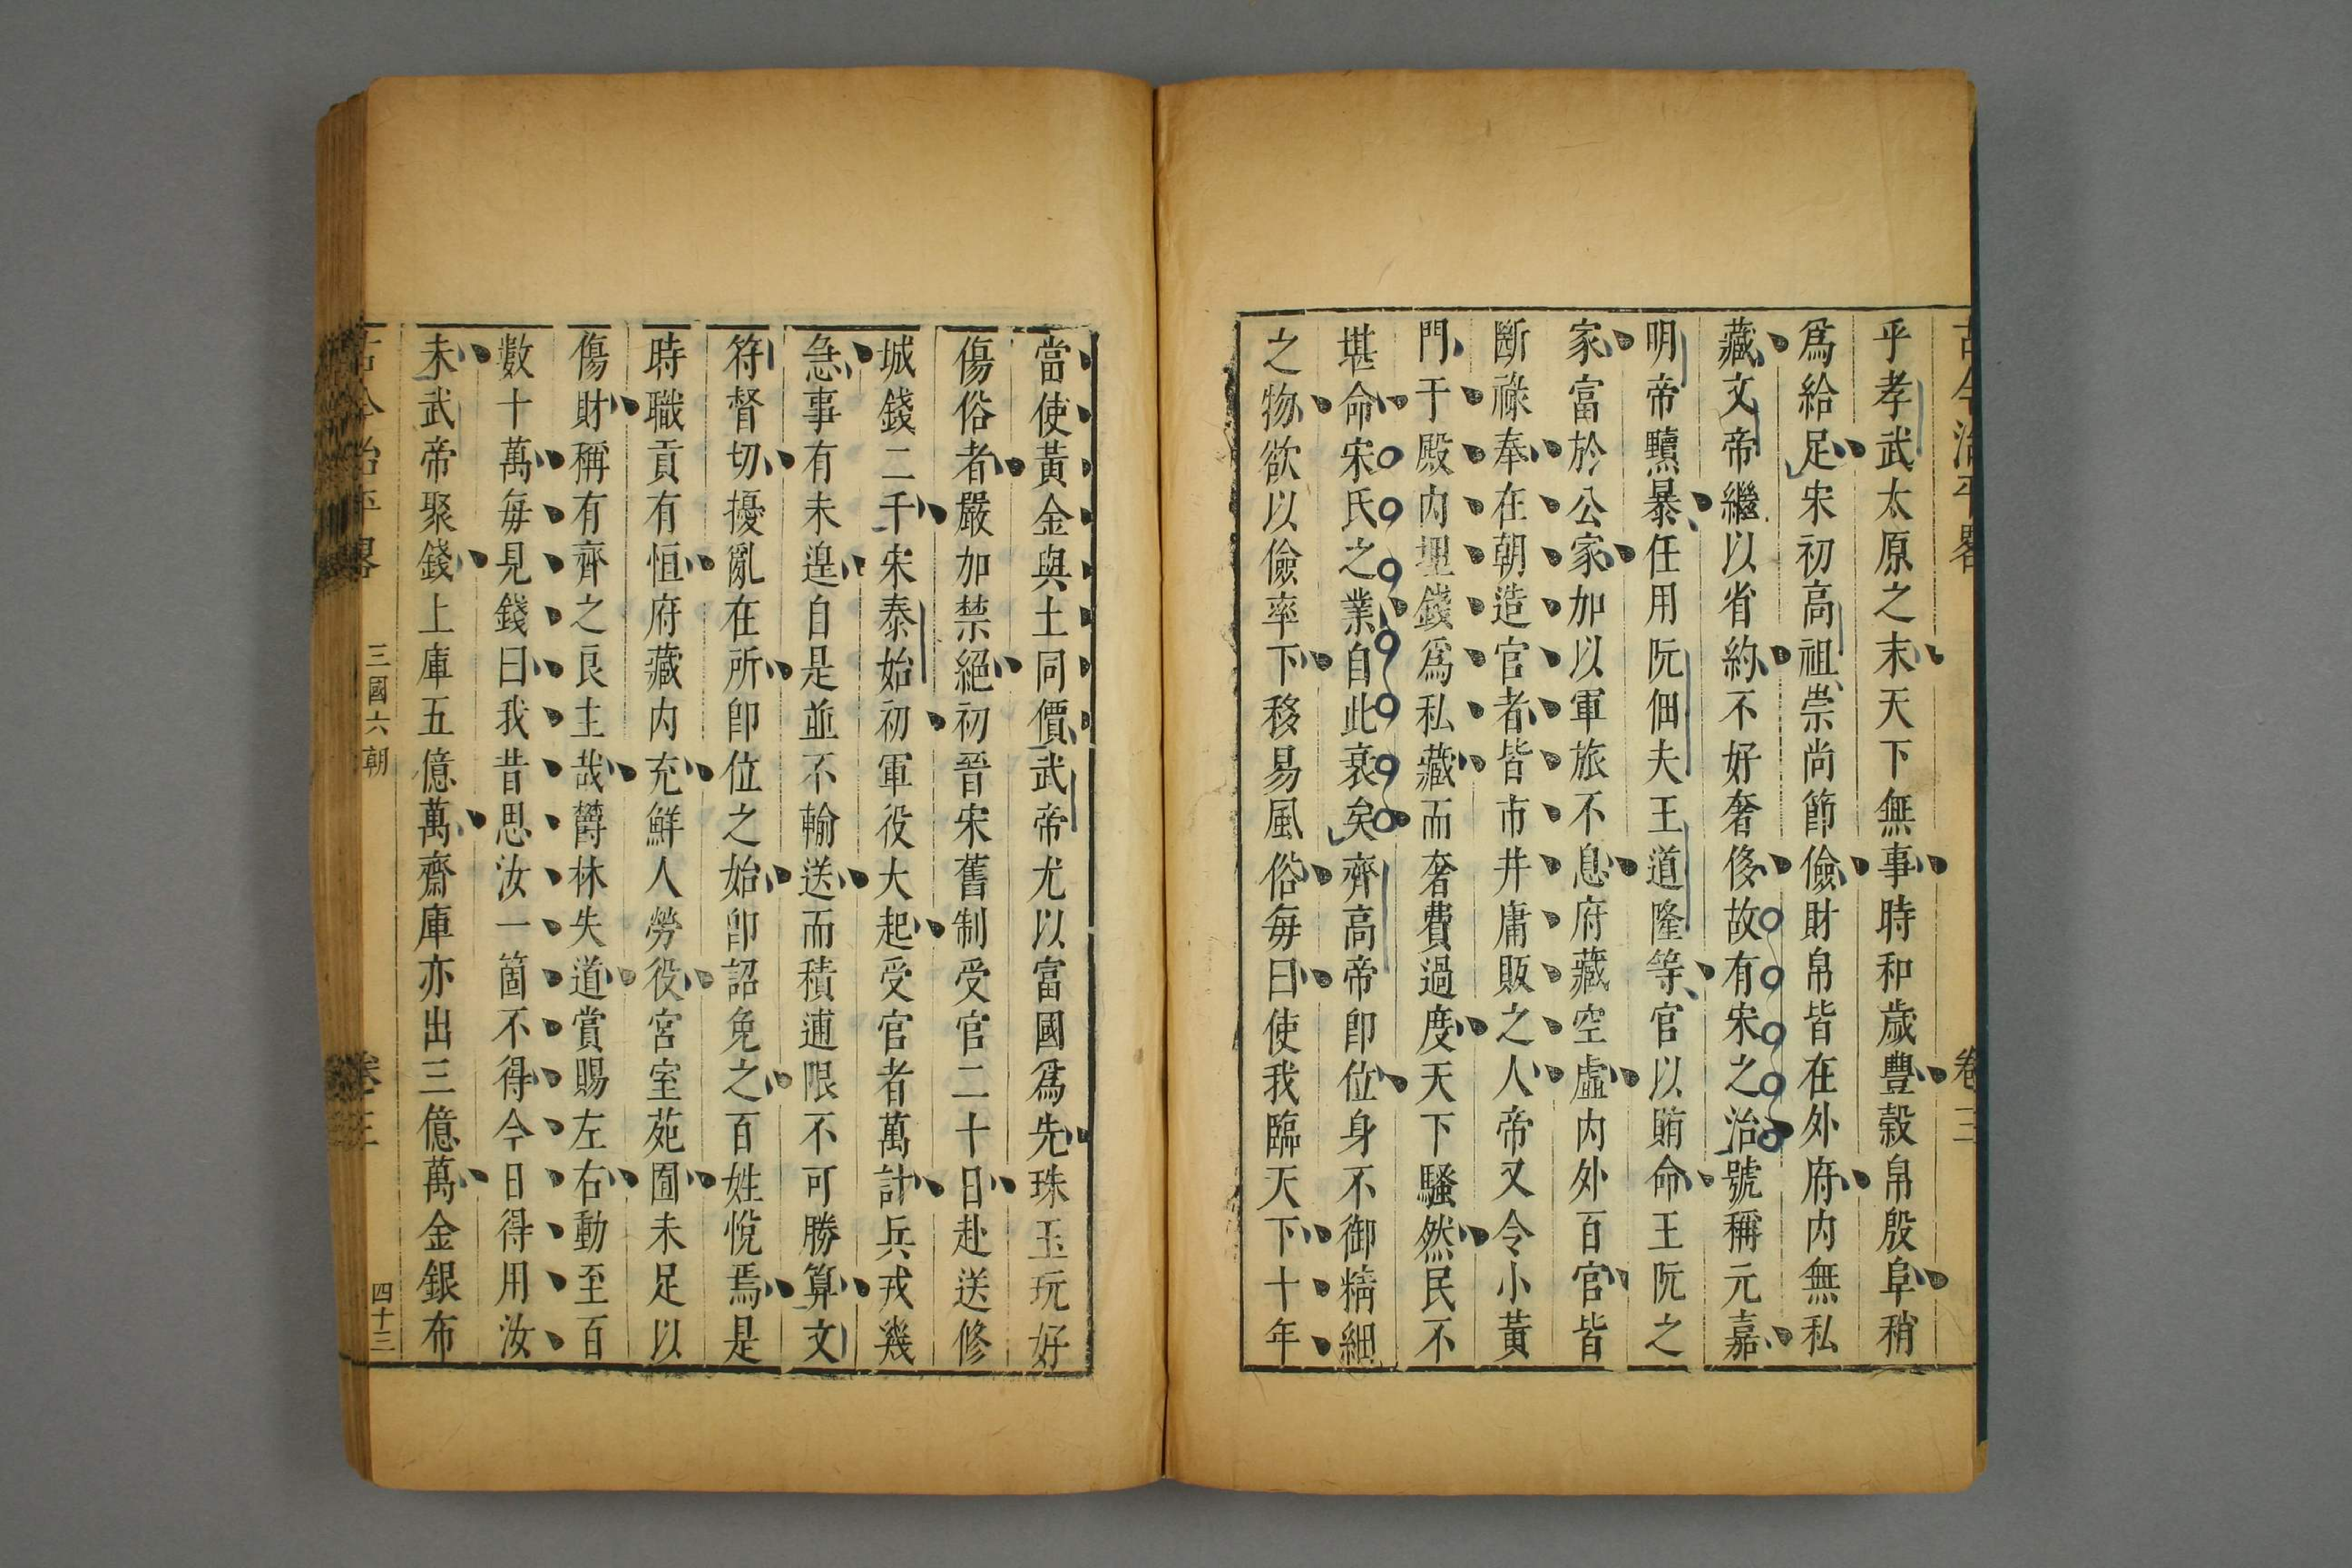 古今治平畧
卷三
乎孝武太原之末天下無事時和歲豐穀帛殷阜稍
爲給足宋初高祖崇尚節儉財帛皆在外府内無私
藏文帝繼以省約不好奢侈故有宋之治號稱元嘉
明帝黷暴任用阮佃夫王道隆等官以賄命王阮之
家富於公家加以軍旅不息府藏空虛内外百官皆
斷祿奉在朝造官者皆市井庸販之人帝又令小黃
門于殿内埋錢爲私藏而奢費過度天下騷然民不
堪命宋氏之業自此衰矣齊高帝即位身不御精細
之物欲以儉率下移易風俗每曰使我臨天下十年
當使黃金與土同價武帝尤以富國爲先珠玉玩好
傷俗者嚴加禁絕初晉宋舊制受官二十日赴送修
城錢二千宋泰始初軍役大起受官者萬計兵戎幾
急事有未遑自是並不輸送而積逋限不可勝算文
符督切擾亂在所即位之始即詔免之百姓悅焉是
時職貢有恒府藏内充鮮人勞役宮室苑囿未足以
傷財稱有齊之良主哉欝林失道賞賜左右動至百
數十萬每見錢曰我昔思汝一箇不得今日得用汝
未武帝聚錢上庫五億萬齋庫亦出三億萬金銀布
古今治平畧
三國六朝
卷三
四十三